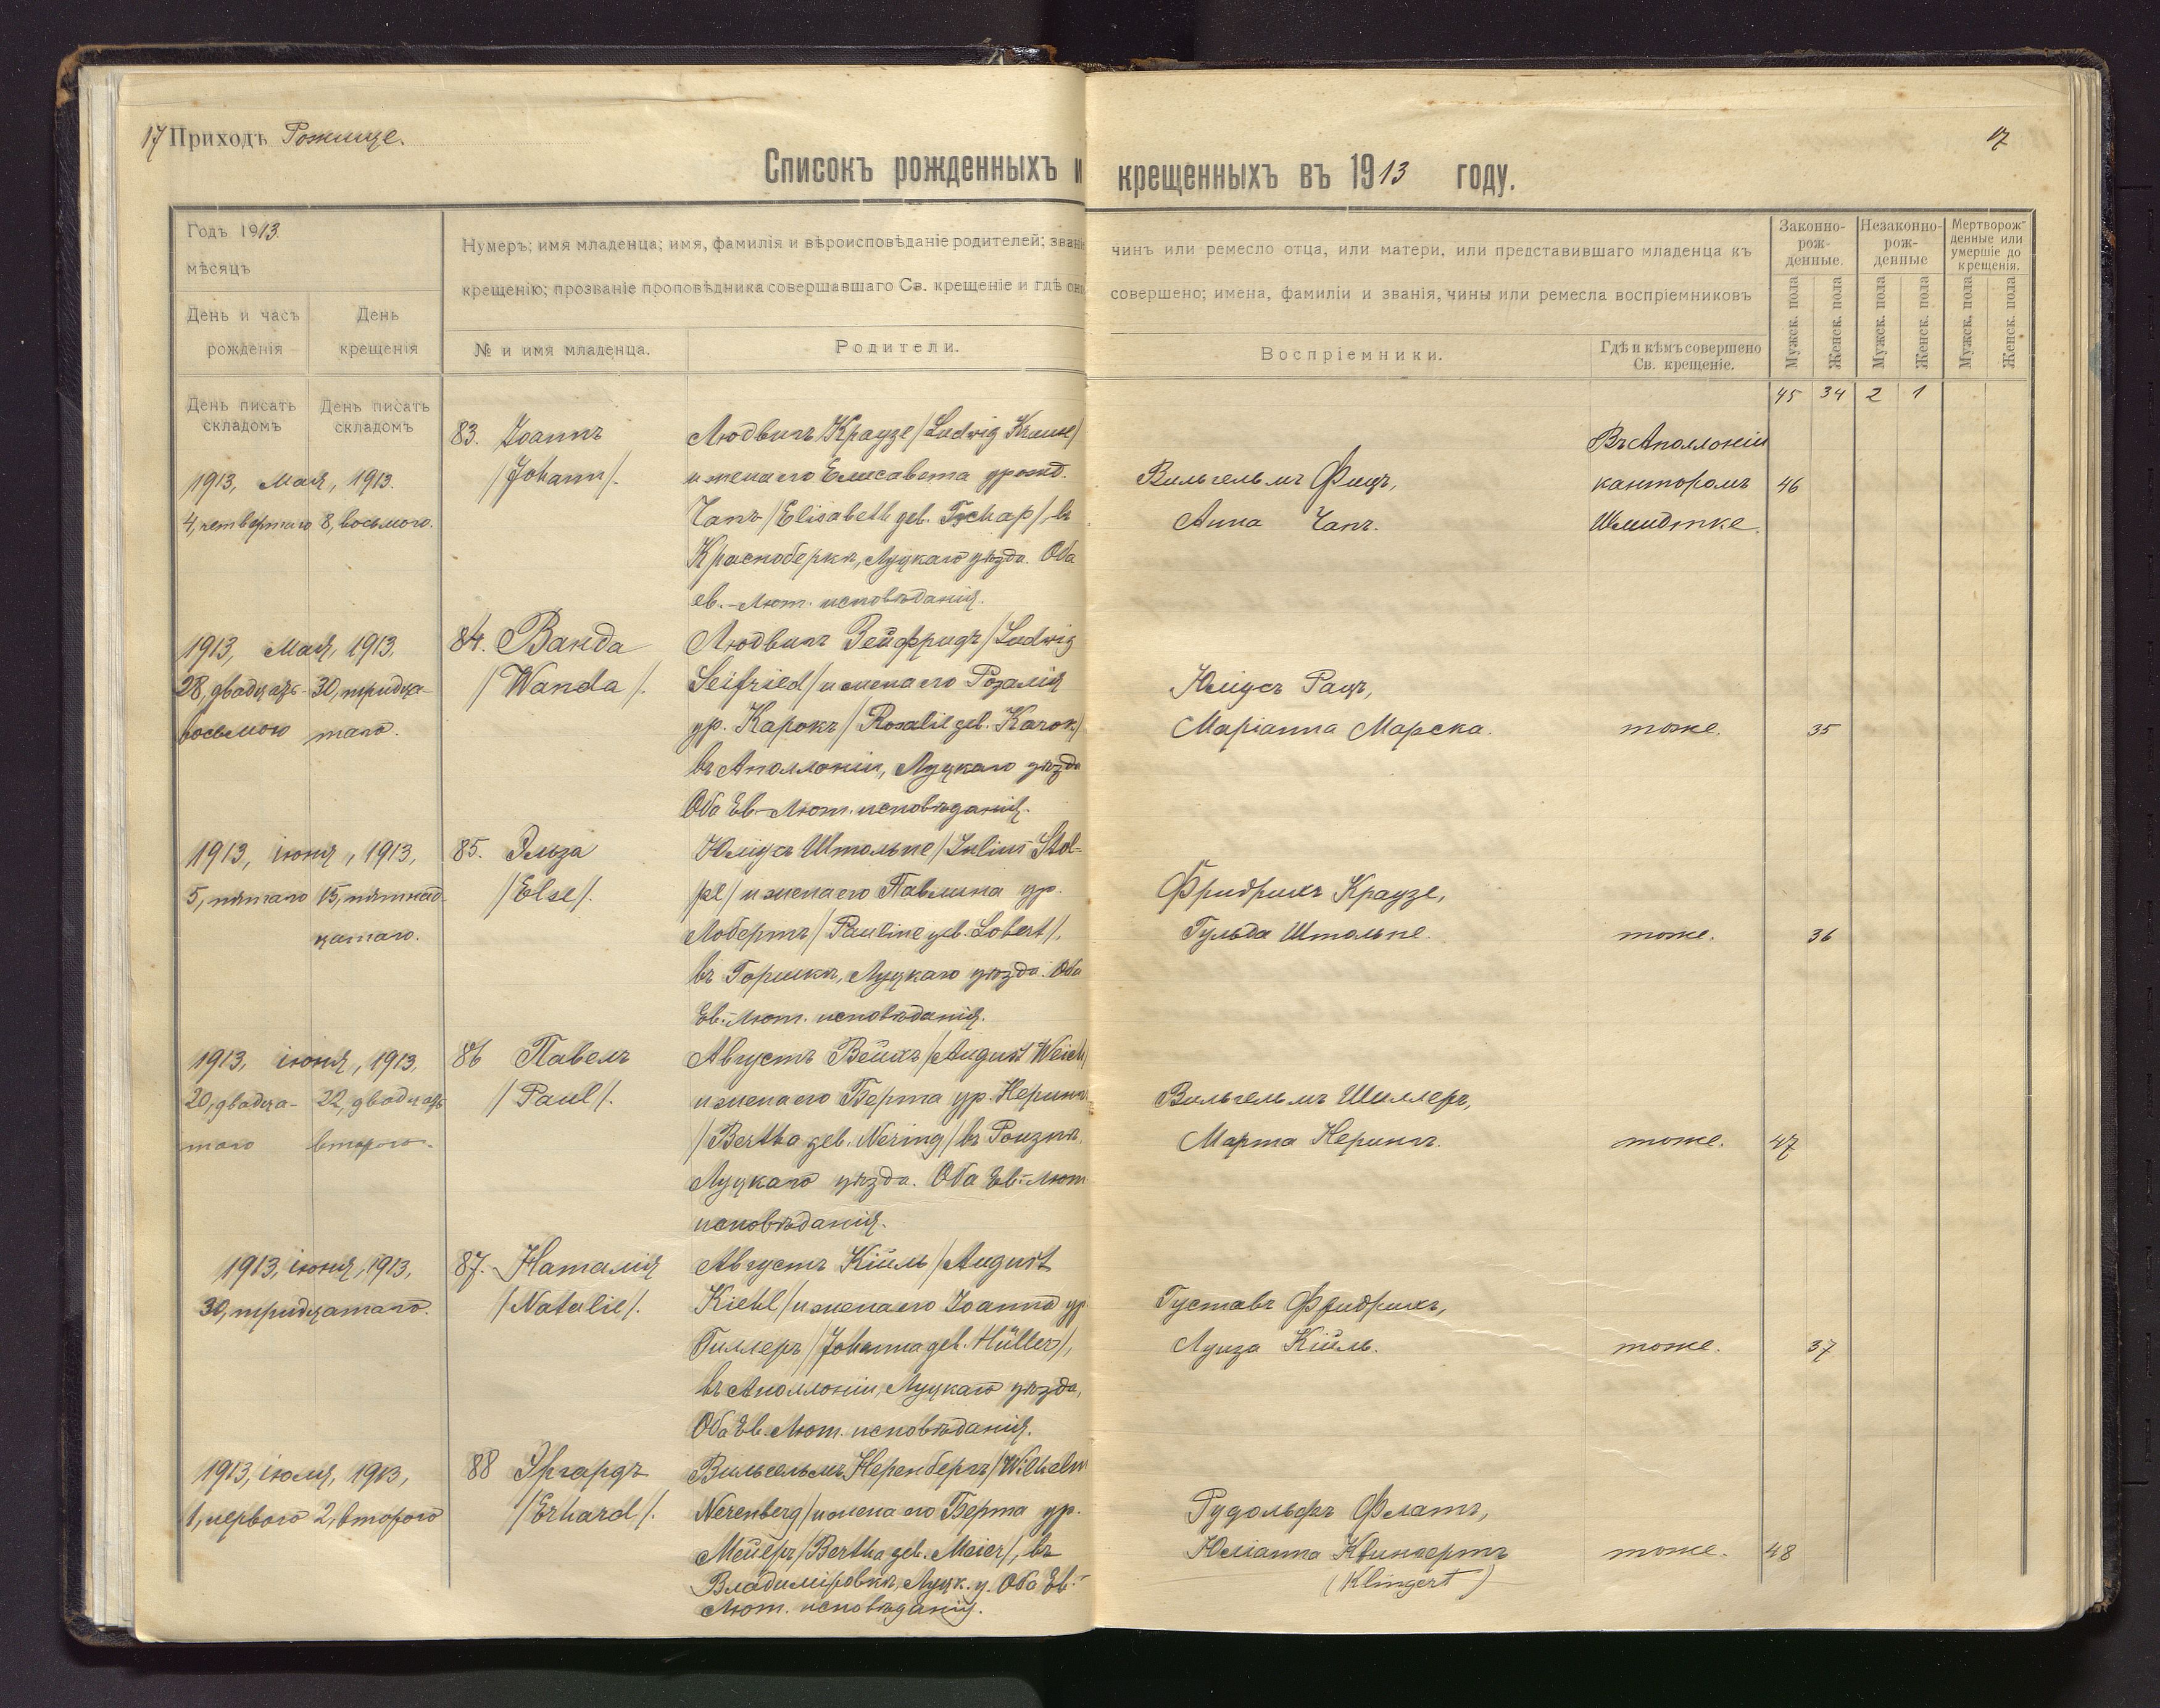 17 Приходъ Рожище.
17
Списокъ рожденныхъ и крещенныхъ въ 1913 году.
Годъ 1913
мѣсяцъ
День и часъ рожденія
День крещенія
Нумеръ; имя младенца; имя, фамилія и вѣроисповѣданіе родителей; звані
чинъ или ремесло отца, или матери, или представившаго младенца къ
крещенію; прозваніе проповѣдника совершавшаго Св. крещеніе и гдѣ оно
совершено; имена, фамиліи и званія, чины или ремесла воспріемниковъ
№ и имя младенца.
Родители.
Воспріемники.
Гдѣ и кѣмъ совершено
Св. крещеніе.
Законно-
рож-
денные.
Незаконно-
рож-
денные
Мертворож-
денные или
умершіе до
крещенія.
Мужск. пола
Женск. пола
Мужск. пола
Женск. пола
Мужск. пола
Женск. пола
День писать
складомъ
День писать
складомъ
45 34 2 1
1913, Мая, 1913.
4, четвертаго 8, восьмого.
83. Іоаннъ
/Johann/.
Людвигъ Краузе /Ludwig Krause/
и жена его Елисавета урожд.
Чапъ /Elisabeth geb. Tschap/, въ
Краснобѣркѣ, Луцкаго уѣзда. Оба
ев.-Лют. исповѣданія.
Вильгельмъ Фицъ,
Анна Чапъ.
Въ Аполлоніи
канторомъ
Шмидтке.
46
1913, Мая, 1913.
28, двадцать- 30, тридца-
восьмого таго.
84. Ванда
/Wanda/.
Людвигъ Зейфридъ /Ludwig
Seifried/ и жена его Розалія
ур. Карокъ /Rosalie geb. Karok/
въ Аполлоніи, Луцкаго уѣзда
Оба Ев.-Лют. исповѣданія.
Юліусъ Рацъ,
Маріанна Марска.
тоже.
35
1913, іюня, 1913,
5, пятаго 15, пятнад-
цатаго.
85. Эльза
/Else/.
Юліусъ Штольпе /Julius Stol-
pe/ и жена его Павлина ур.
Лобертъ /Pauline geb. Lobert/,
въ Горишкѣ, Луцкаго уѣзда. Оба
Ев.-Лют. исповѣданія.
Фридрихъ Краузе,
Гульда Штольпе.
тоже.
36
1913, іюня, 1913.
20, двадца- 22, двадцать
таго второго.
86 Павелъ
/Paul/.
Августъ Вейхъ /August Weich/
и жена его Берта ур. Нерингъ
/Bertha geb. Nering/ въ
Луцкаго уѣзда. Оба Ев.-Лют
исповѣданія.
Вильгельмъ Шиллеръ,
Марта Нерингъ.
тоже.
47
1913, іюня, 1913,
30, тридцатаго.
87. Наталія
/Natalie/.
Августъ Кіиль /August
Kiehl/ и жена его Іоанна ур.
Гиллеръ /Johanna geb. Hüller/,
въ Аполлоніи, Луцкаго уѣзда,
Оба Ев. Лют. исповѣданія.
Густавъ Фридрихъ,
Луиза Кіиль.
тоже.
37
1913, іюля, 1913,
1, перваго 2, второго
88 Эргардъ
/Erhard/.
Вильгельмъ Неренбергъ /Wilhelm
Nerenberg/ и жена его Берта ур.
Мейеръ /Bertha geb. Meier/, въ
Владиміровкѣ, Луцк. у. Оба Ев.-
Лют. исповѣданія.
Рудольфъ Флатъ,
Юліанна Клингертъ
(Klingert)
тоже.
48